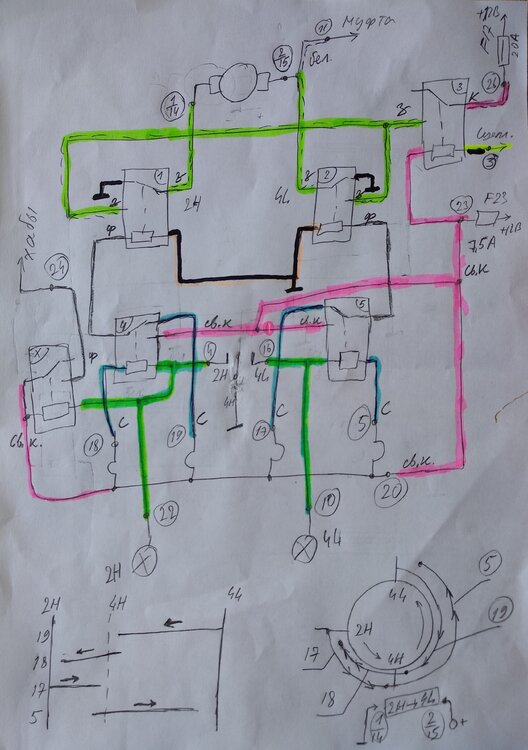 Муфта
11
бел.
2/15
1/14
+12В
F12
20А
26
3
К
З
Сцепл.
3
1
З
З
2Н
4L
2
З
З
Ф
Ф
23
F23
7,5А
+12В
хабы
24
св.к
4
св.к
1
св.к
5
X
Ф
4
16
2Н
4L
4Н
св.к.
18
С
19
С
17
С
5
С
св.к.
20
22
10
2Н
4L
2Н
4Н
4L
19
18
17
5
5
4L
2Н
4Н
19
17
18
2Н→4L
1/14
2/15
+